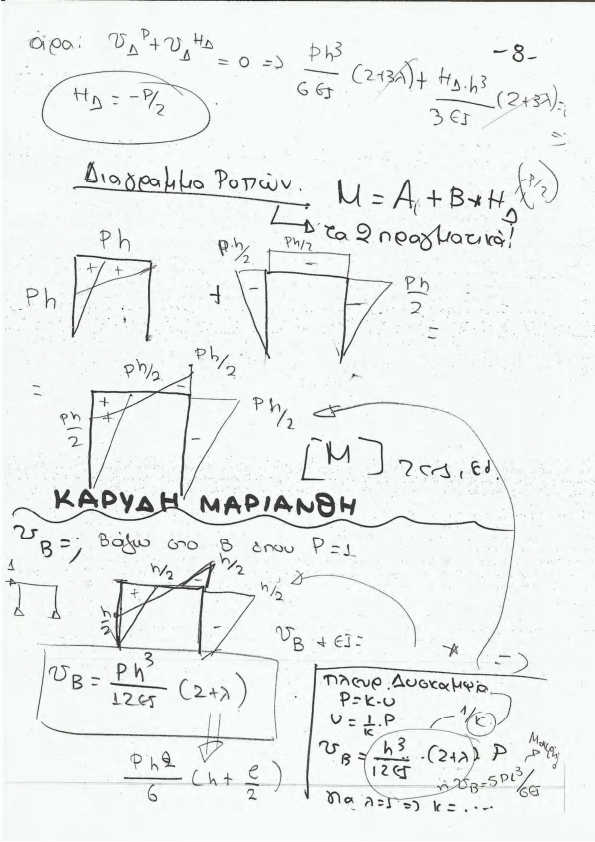 άρα: υ_Δ^P + υ_Δ^{HΔ} = 0 => Ph³/6EJ (2+3λ) + H_Δ·h³/3EJ (2+3λ) =;
-8-
=;
H_Δ = -P/2
Διάγραμμα Ροπών.
M = A_i + B*H_Δ (-P/2)
τα 2 πραγματικά!
Ph
P·h/2
Ph/2
+ +
-
Ph
+
-
-
Ph/2
=
=
Ph/2
Ph/2
+
-
Ph/2
+
-
Ph/2
[M]
ΚΑΡΥΔΗ ΜΑΡΙΑΝΘΗ
υ_B =; Βάζω στο Β όπου P=1
1
h/2
h/2
+
-
h/2
h/2
-
υ_B * EJ =
*
=>
υ_B = Ph³/12EJ (2+λ)
Πλευρ. Δυσκαμψία
P=K·υ
υ = 1/K · P
1/K
υ_B = h³/12EJ ·(2+λ) P
Μαρή
ή υ_B = 5PL³/6EJ
Για λ=5 => K = ....
Ph²/6 (h + e/2)